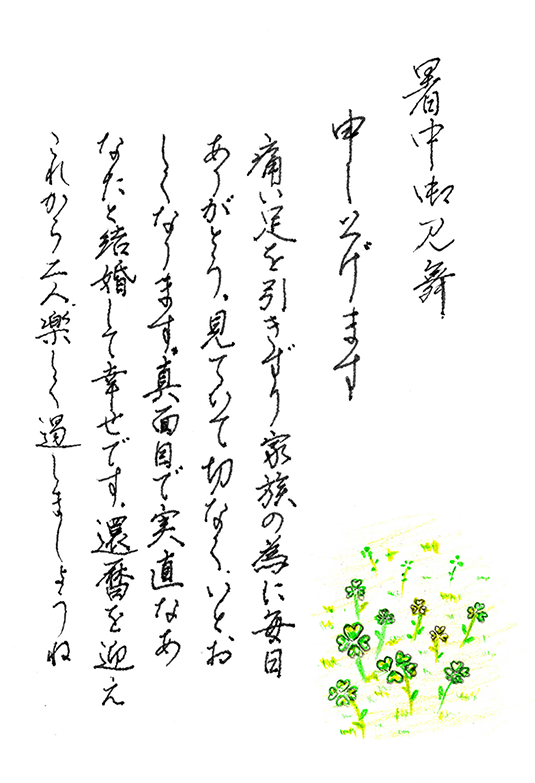 暑中御見舞
申し上げます
痛い足を引きずり家族の為に毎日
ありがとう。見ていて切なく、いとお
しくなります。真面目で実直なあ
なたと結婚して幸せです。還暦を迎え
これから二人、楽しく過しましょうね